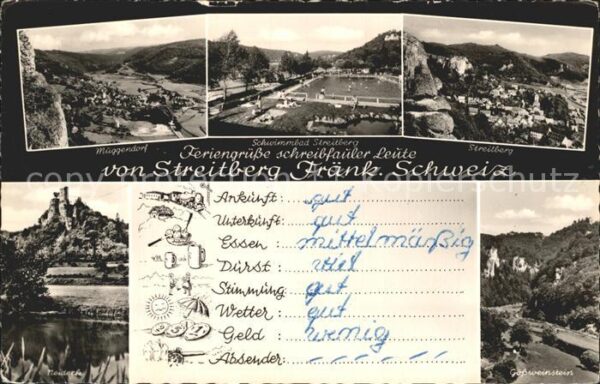 Müggendorf
Schwimmbad Streitberg
Streitberg
Feriengrüße schreibfauler Leute
von Streitberg Fränk. Schweiz
Ankunft: gut
Unterkunft: gut
Essen: mittelmäßig
Durst: viel
Stimmung: gut
Wetter: gut
Geld: wenig
Absender: - - - - - -
Neideck
Gößweinstein